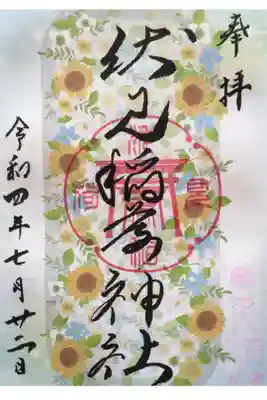 奉拝
伏見稲荷神社
令和四年七月廿二日